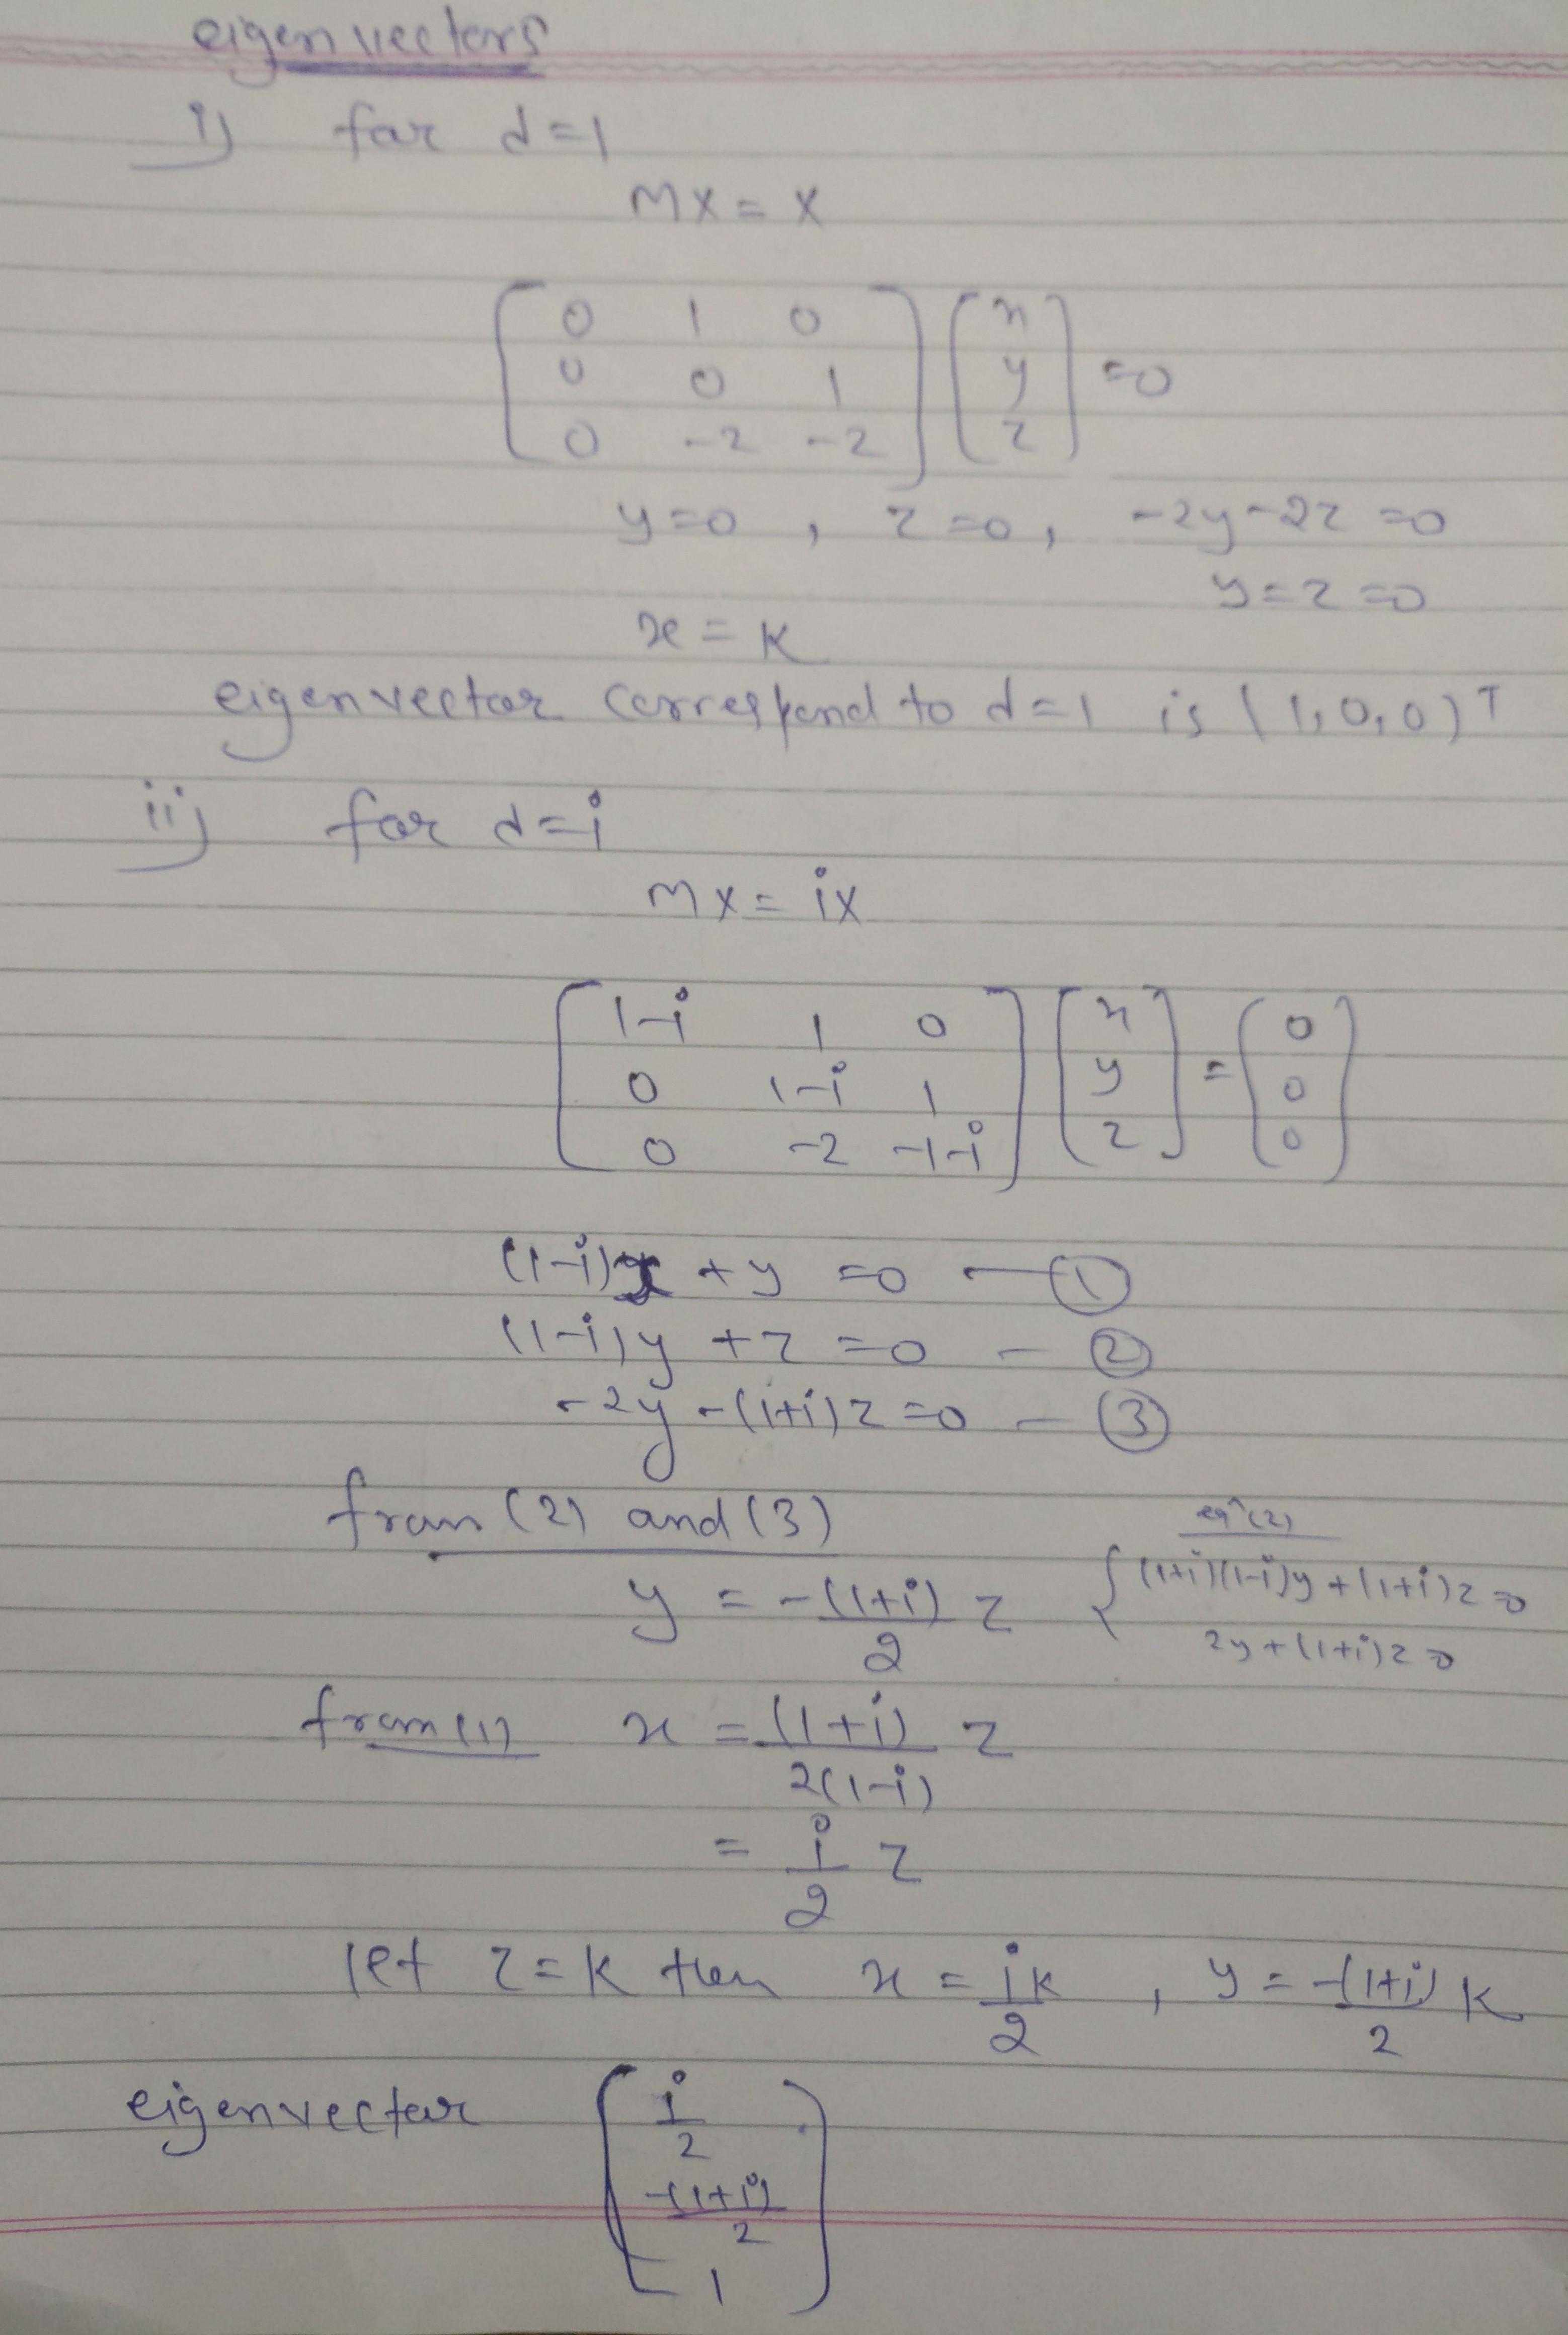 eigenvectors
i) for d=1
MX = X
[ 0 1 0 ] [ x ]
[ 0 0 1 ] [ y ] =0
[ 0 -2 -2 ] [ z ]
y=0 , z=0, -2y-2z=0
y=z=0
x=k
eigenvector correspond to d=1 is (1,0,0)ᵀ
ii) for d=i
MX= iX
[ 1-i 1 0 ] [ x ] = ( 0 )
[ 0 1-i 1 ] [ y ] ( 0 )
[ 0 -2 -1-i ] [ z ] ( 0 )
(1-i)x +y =0 — ①
(1-i)y +z =0 — ②
-2y -(1+i)z=0 — ③
from (2) and (3)
eqⁿ(2)
y = -(1+i)/2 z { (1+i)(1-i)y+(1+i)z=0
2y+(1+i)z=0
from(1) x = (1+i)/2(1-i) z
= i/2 z
let z=k then x = ik/2 , y = -(1+i)/2 k
eigenvector [ i/2 ]
[ -(1+i)/2 ]
[ 1 ]